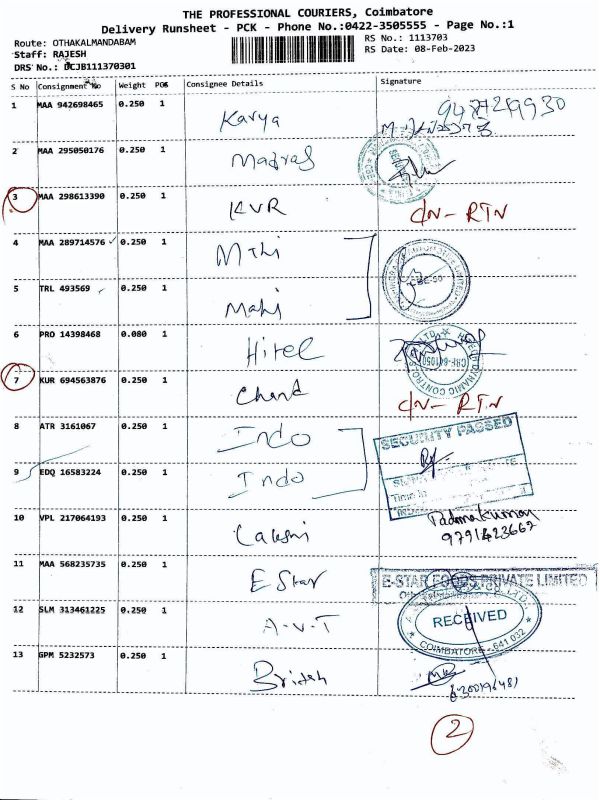 THE PROFESSIONAL COURIERS, Coimbatore
Delivery Runsheet - PCK - Phone No.:0422-3505555 - Page No.:1
Route: OTHAKALMANDABAM
RS No.: 1113703
Staff: RAJESH
RS Date: 08-Feb-2023
DRS No.: DCJB111370301
S No Consignment No Weight PCS Consignee Details Signature
1 MAA 942698465 0.250 1 Karya
2 MAA 295050176 0.250 1 Madras
3 MAA 298613390 0.250 1 KVR C/N - RTN
4 MAA 289714576 0.250 1 MThi
5 TRL 493569 0.250 1 Mahi
6 PRO 14398468 0.080 1 Hitel
7 KUR 694563876 0.250 1 Chand C/N - RTN
8 ATR 3161067 0.250 1 Indo SECURITY PASSED
9 EDQ 16583224 0.250 1 Indo
Time In
10 VPL 217064193 0.250 1 Lakshi Padmakumar
9791423662
11 MAA 568235735 0.250 1 E Star E-STAR FOODS PRIVATE LIMITED
12 SLM 313461225 0.250 1 A-V-T RECEIVED
COIMBATORE - 641 032
13 GPM 5232573 0.250 1
2